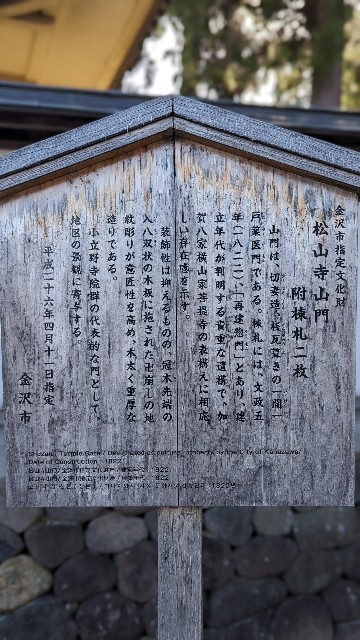 金沢市指定文化財
松山寺山門
附棟札二枚
山門は、切妻造、桟瓦葺きの一間一
戸薬医門である。棟札には、文政五
年（一八二二）「再建惣門」とあり、建
立年代が判明する貴重な遺構で、加
賀八家横山家菩提寺の表構えに相応
しい存在感を示す。
装飾性は抑えるものの、冠木先端の
入八双状の木板に施された卍崩しの地
紋彫りが意匠性を高め、木太く重厚な
造りである。
小立野寺院群の代表的な門として、
地区の景観に寄与する。
平成二十六年四月十一日指定
金沢市
Shozanji Temple Gate / Designated as cultural property by the City of Kanazawa/
Date of Construction : 1822
1822
1822
1822